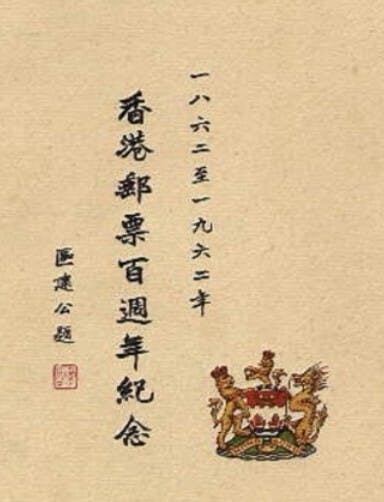 一八六二至一九六二年
香港郵票百週年紀念
區建公題